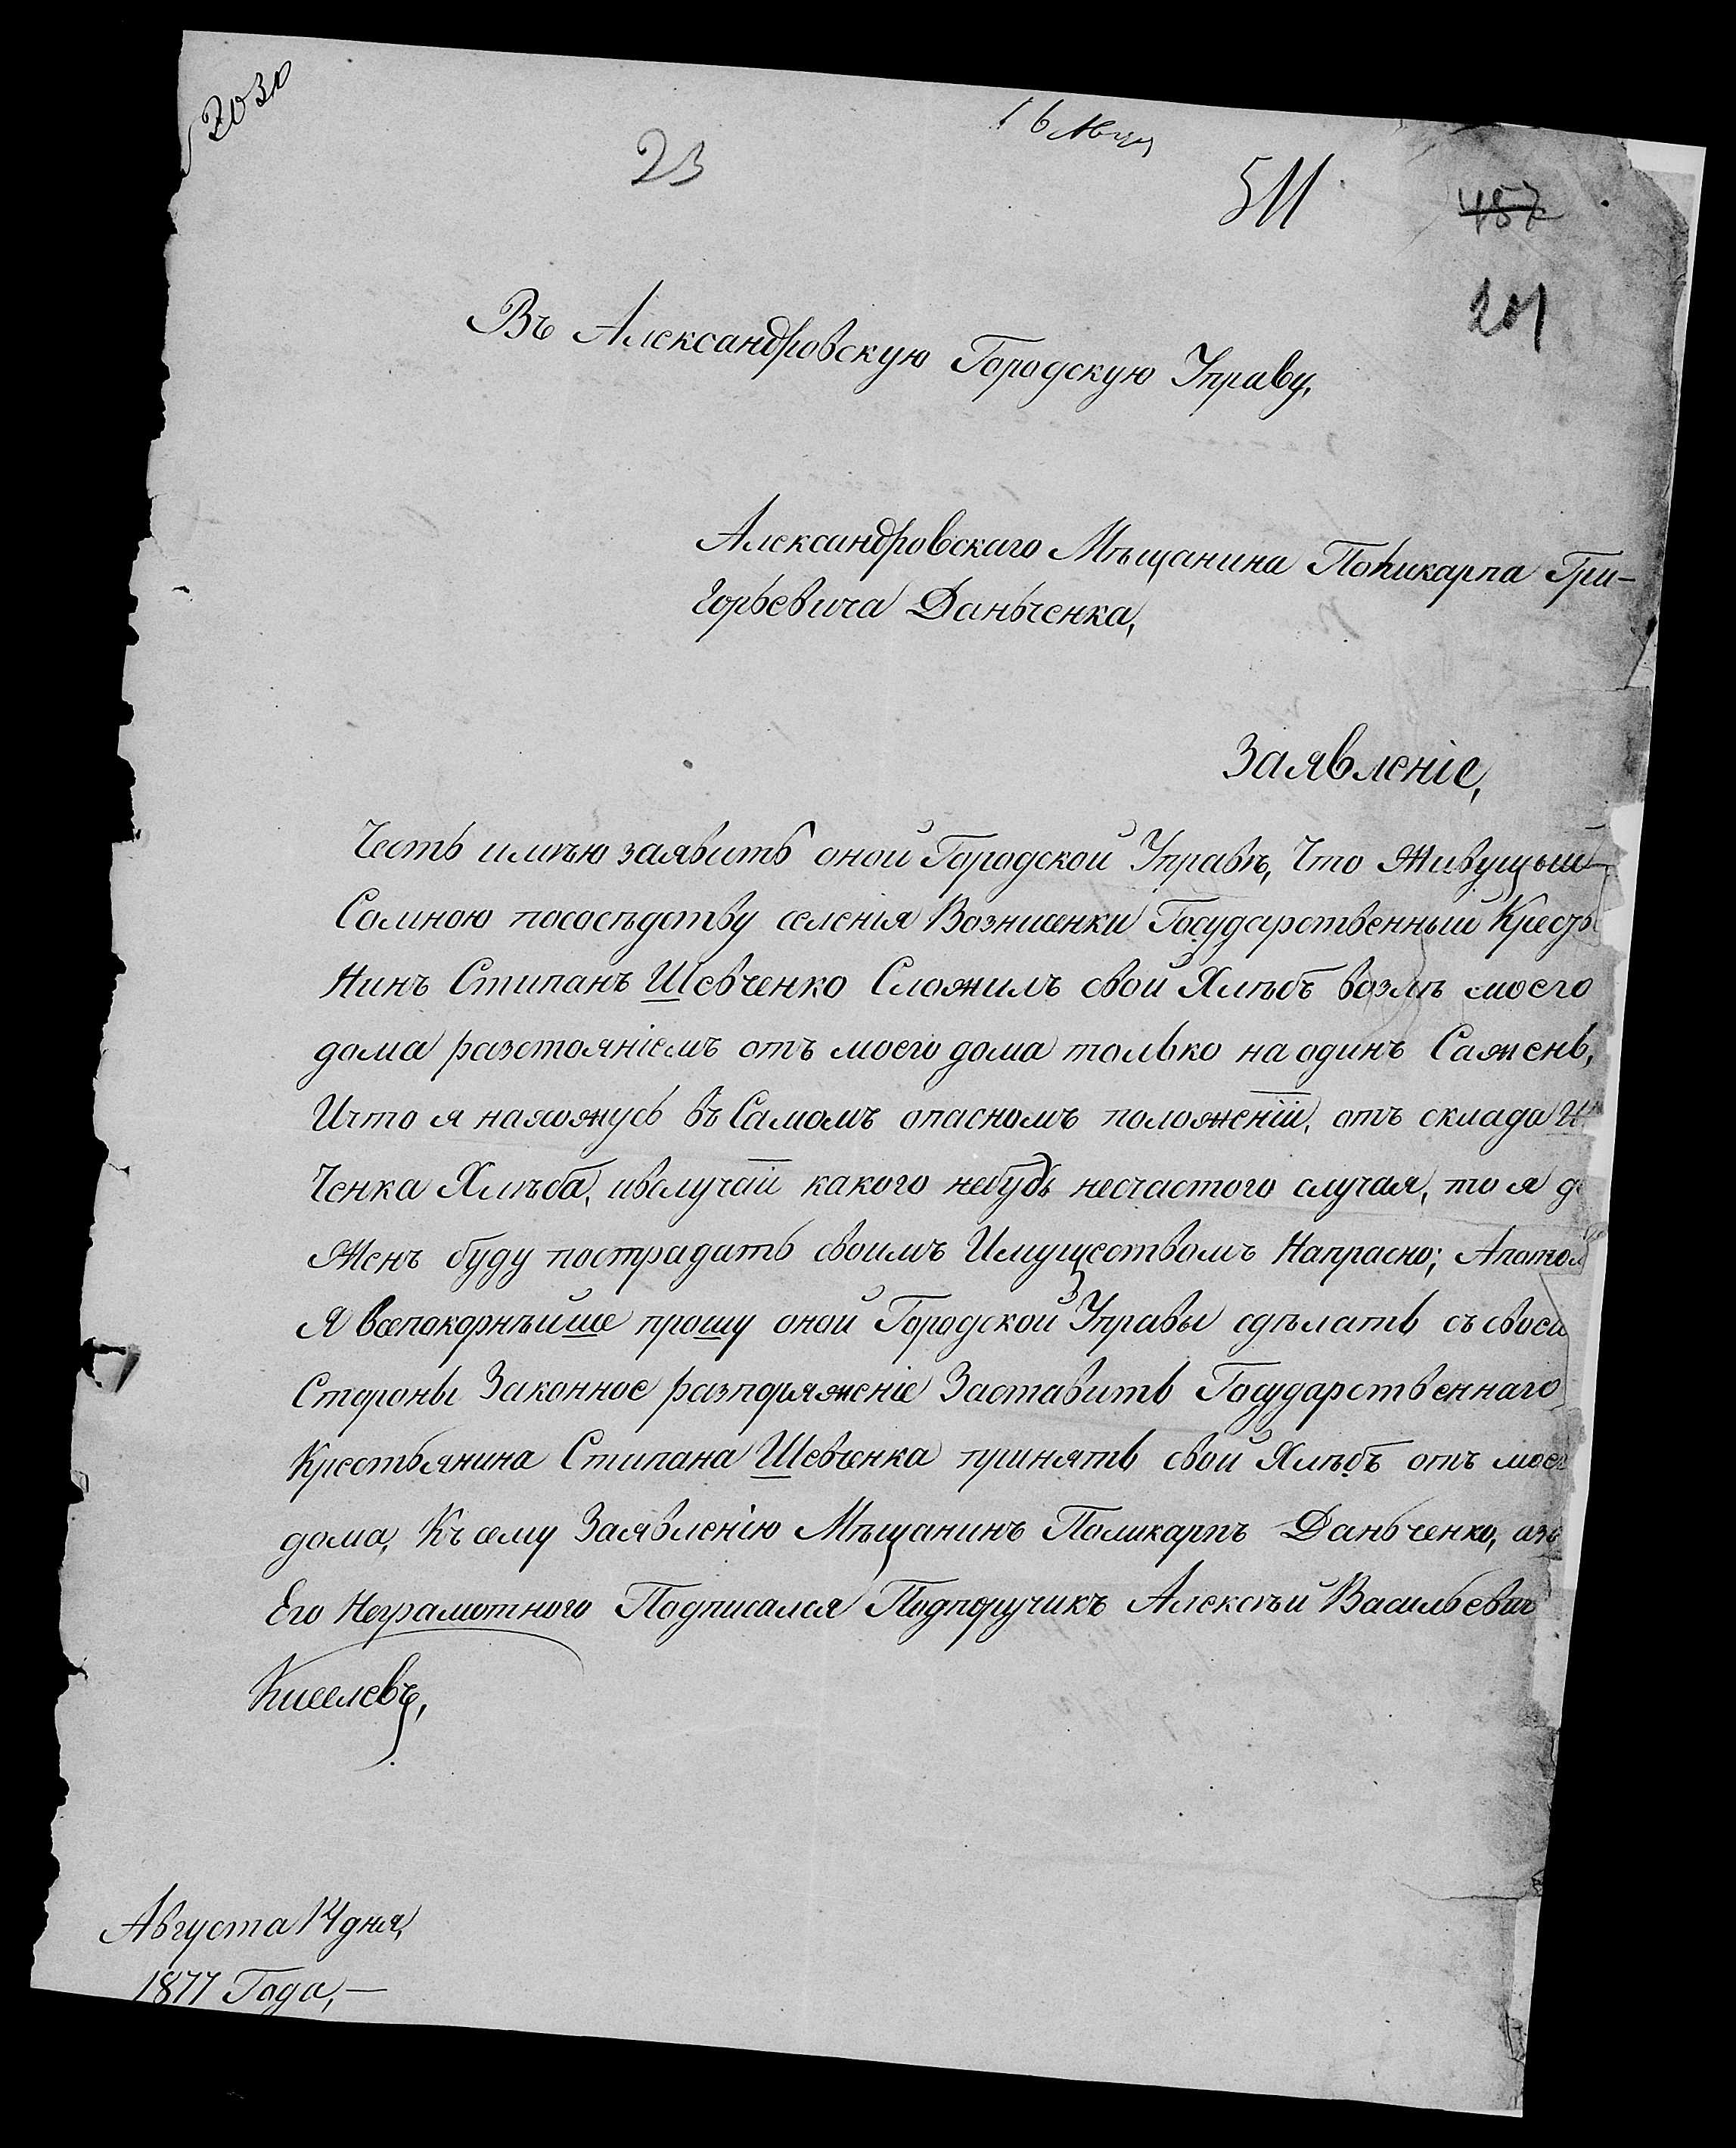 2030
16 Авгу
23
511
457
201
Въ Александровскую Городскую Управу,
Александровскаго Мѣщанина Поликарпа Гри-
горьевича Даньченка,
Заявленіе,
Честь имѣю заявить оной Городской Управѣ, Что Живущый
Сомною пососѣдству селенія Вознисенки Государственный Кресть
Нинъ Стипанъ Шевченко Сложилъ свой Хлѣбъ возлѣ моего
дома разстояніемъ отъ моего дома только на одинъ Сажень,
Ичто я нахожусь въ Самомъ опасномъ положеніи, отъ склада
Ченка Хлѣба, ивслучаи какого небудь несчастого случая, то я
Женъ буду пострадать своимъ Имуществомъ Напрасно; Апотом
Я всепокорнѣйше прошу оной Городской Управы сдѣлать съ своей
Стороны Законное разпоряженіе Заставить Государственнаго
Крестьянина Стипана Шевченка принять свой Хлѣбъ отъ моег
дома, Къ сему Заявленію Мѣщанинъ Поликарпъ Даньченко, аза
Его Неграмотного Подписался Подпоручикъ Алексѣй Васильевич
Киселевъ,
Августа 14 дня,
1877 Года,—